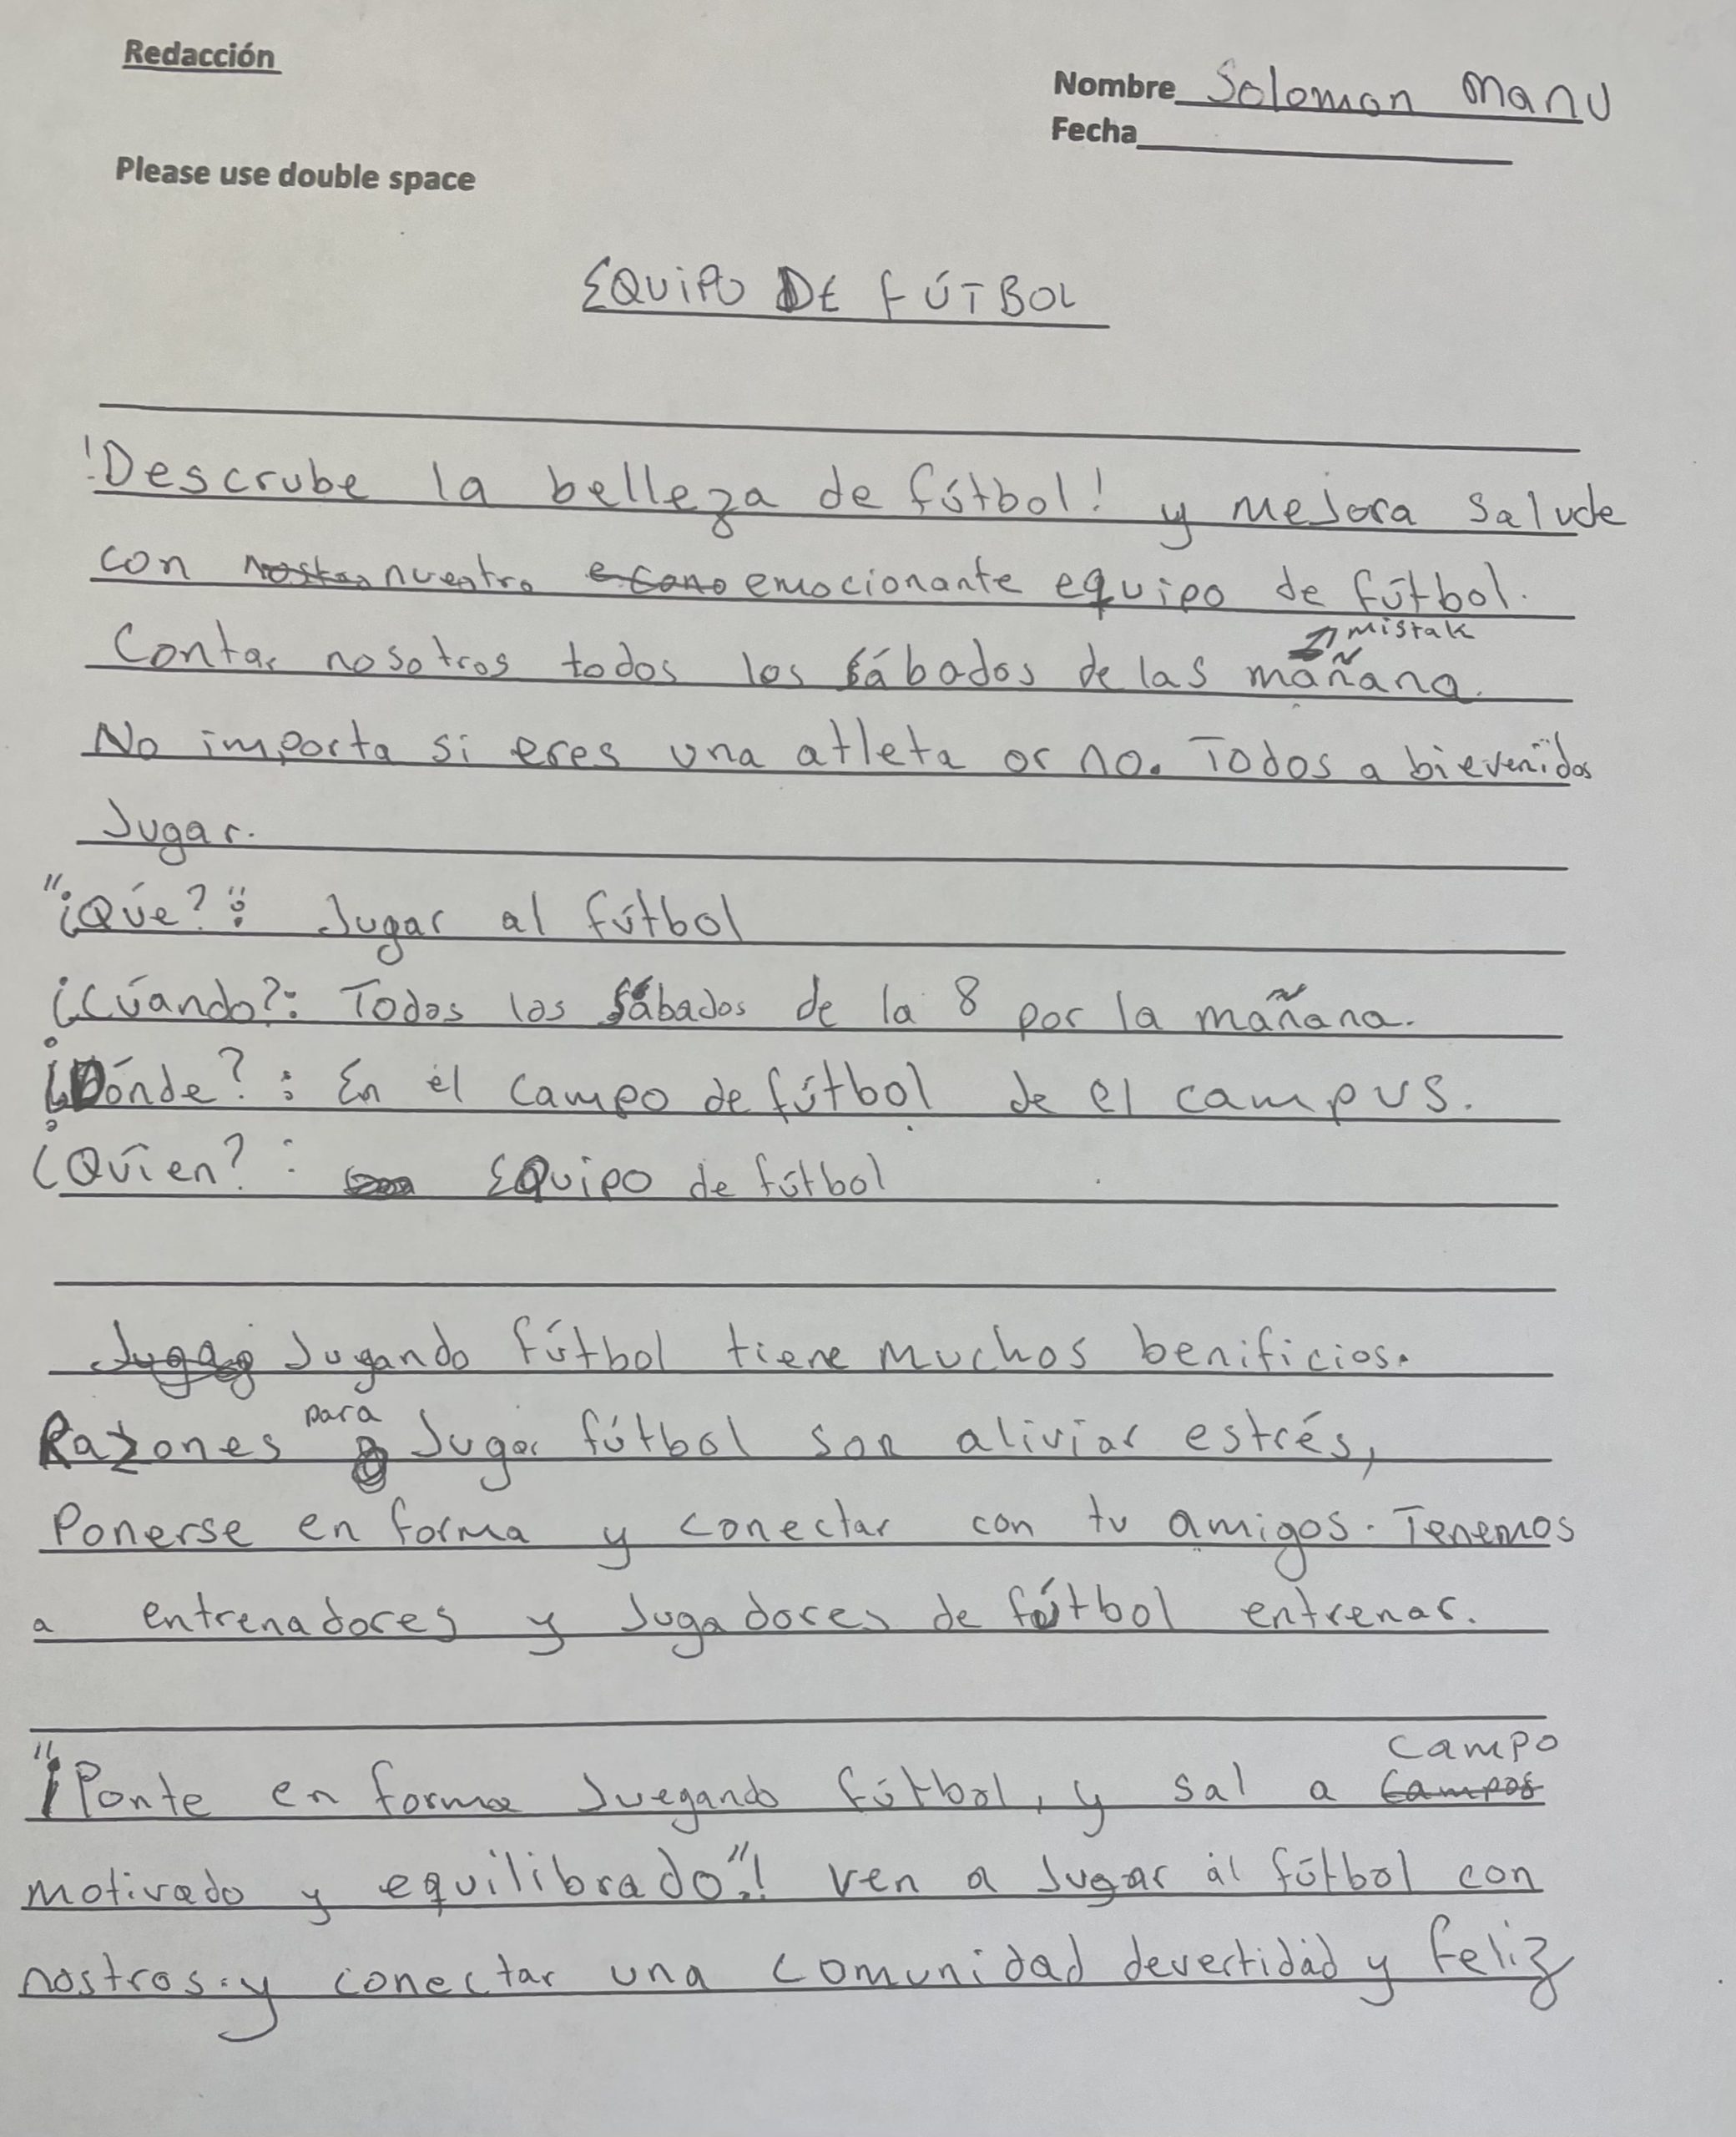 Redacción
Nombre Solomon Manu
Fecha
Please use double space
EQUIPO DE FÚTBOL
¡Descrube la belleza de fútbol! y mejora salude
con nuestro emocionante equipo de fútbol.
mistak
Contar nosotros todos los sábados de las mañana.
No importa si eres una atleta or no. Todos a bievenidos
Jugar.
"¿Qúe?": Jugar al fútbol
¿Cúando?: Todos los sábados de la 8 por la mañana.
¿Dónde?: En el campo de fútbol de el campus.
¿Quíen?: Equipo de fútbol
Jugando fútbol tiene muchos benificios.
Razones para Jugar fútbol son aliviar estrés,
Ponerse en forma y conectar con tu amigos. Tenemos
a entrenadores y Jugadores de fútbol entrenar.
"¡Ponte en forma Juegando fútbol, y sal a campo
motivado y equilibrado"! ven a Jugar al fútbol con
nostros.y conectar una comunidad devertidad y feliz